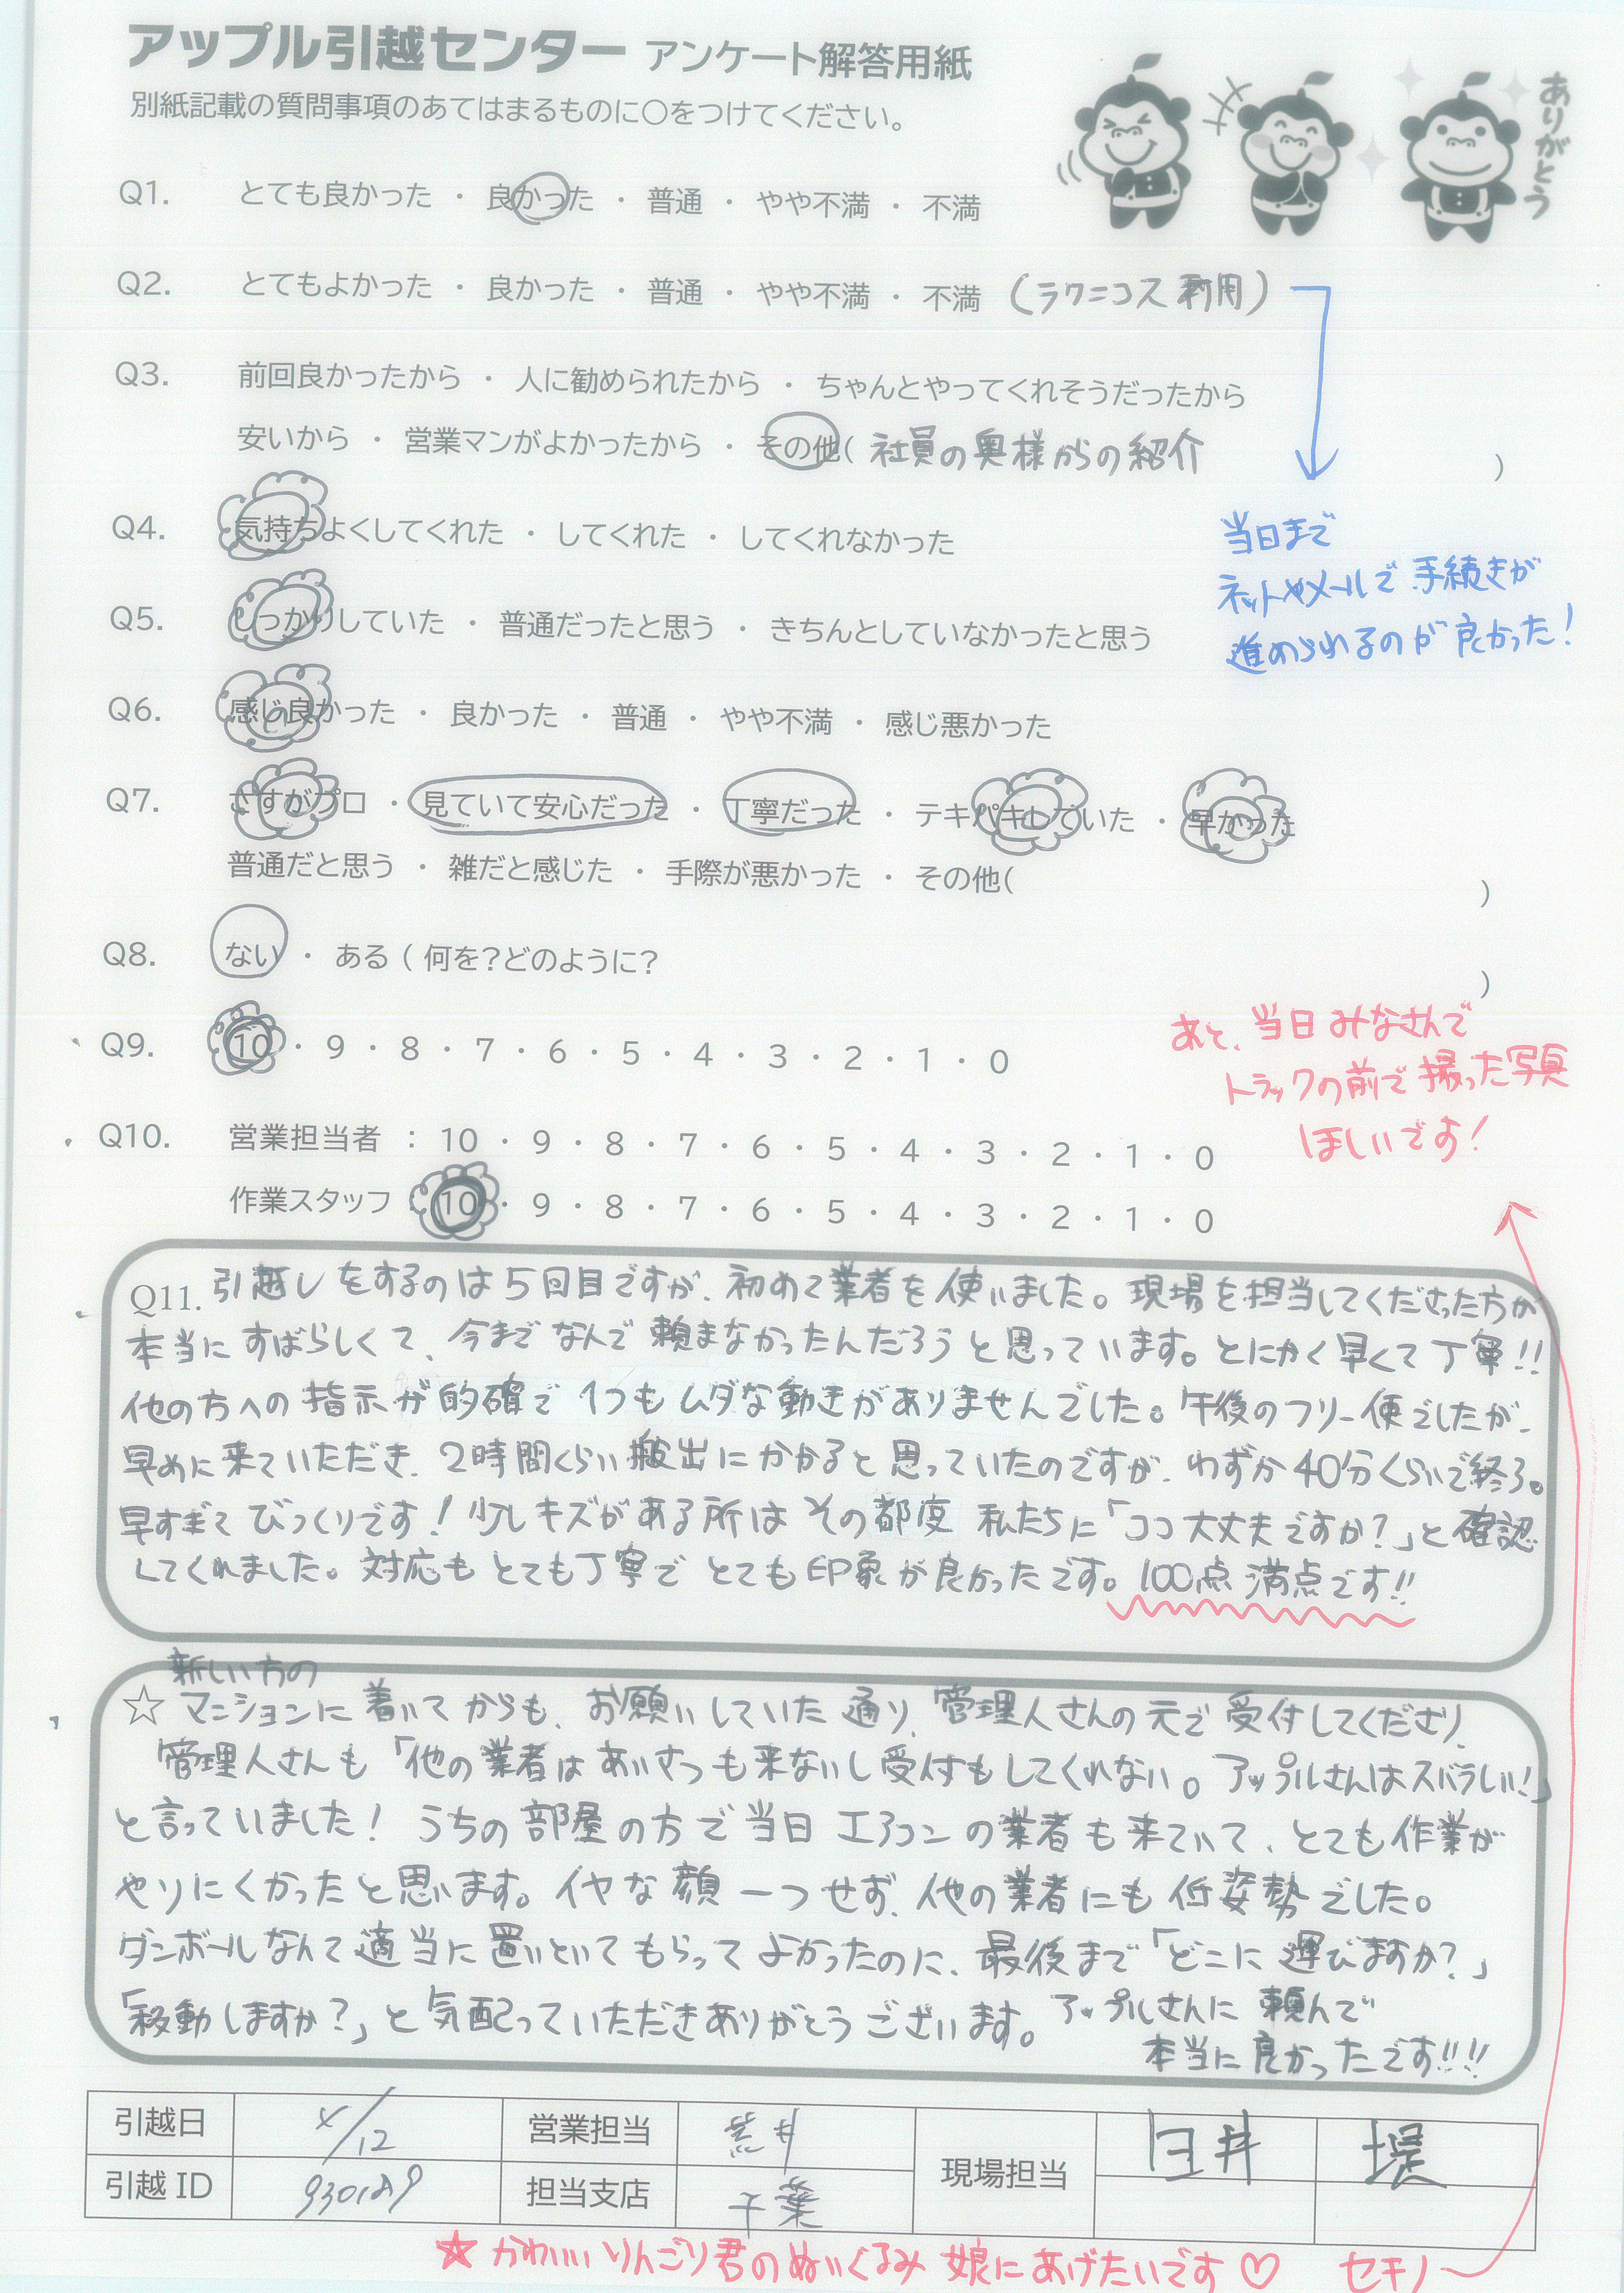 アップル引越センター アンケート解答用紙
別紙記載の質問事項のあてはまるものに○をつけてください。
ありがとう
Q1. とても良かった ・ 良かった ・ 普通 ・ やや不満 ・ 不満
Q2. とてもよかった ・ 良かった ・ 普通 ・ やや不満 ・ 不満 (ラクニコス利用)
Q3. 前回良かったから ・ 人に勧められたから ・ ちゃんとやってくれそうだったから
安いから ・ 営業マンがよかったから ・ その他( 社員の奥様からの紹介 )
当日まで
ネットやメールで手続きが
進められるのが良かった!
Q4. 気持ちよくしてくれた ・ してくれた ・ してくれなかった
Q5. しっかりしていた ・ 普通だったと思う ・ きちんとしていなかったと思う
Q6. 感じ良かった ・ 良かった ・ 普通 ・ やや不満 ・ 感じ悪かった
Q7. さすがプロ ・ 見ていて安心だった ・ 丁寧だった ・ テキパキしていた ・ 早かった
普通だと思う ・ 雑だと感じた ・ 手際が悪かった ・ その他( )
Q8. ない ・ ある ( 何を?どのように? )
Q9. 10 ・ 9 ・ 8 ・ 7 ・ 6 ・ 5 ・ 4 ・ 3 ・ 2 ・ 1 ・ 0
あと、当日みなさんで
トラックの前で撮った写真
ほしいです!
Q10. 営業担当者 : 10 ・ 9 ・ 8 ・ 7 ・ 6 ・ 5 ・ 4 ・ 3 ・ 2 ・ 1 ・ 0
作業スタッフ : 10 ・ 9 ・ 8 ・ 7 ・ 6 ・ 5 ・ 4 ・ 3 ・ 2 ・ 1 ・ 0
Q11. 引越しをするのは5回目ですが、初めて業者を使いました。現場を担当してくださった方が
本当にすばらしくて、今までなんで頼まなかったんだろうと思っています。とにかく早くて丁寧!!
他の方への指示が的確で1つもムダな動きがありませんでした。午後のフリー便でしたが、
早めに来ていただき、2時間くらい搬出にかかると思っていたのですが、わずか40分くらいで終了。
早すぎてびっくりです!少しキズがある所はその都度私たちに「ココ大丈夫ですか?」と確認
してくれました。対応もとても丁寧でとても印象が良かったです。100点満点です!!
新しい方の
☆マンションに着いてからも、お願いしていた通り、管理人さんの元で受付してくださり、
管理人さんも「他の業者はあいさつも来ないし受付もしてくれない。アップルさんはスバラしい!」
と言っていました!うちの部屋の方で当日エアコンの業者も来ていて、とても作業が
やりにくかったと思います。イヤな顔一つせず、他の業者にも低姿勢でした。
ダンボールなんて適当に置いといてもらってよかったのに、最後まで「どこに運びますか?」
「移動しますか?」と気配っていただきありがとうございます。アップルさんに頼んで
本当に良かったです!!!
引越日 4/12 営業担当 荒井 現場担当 臼井 堤
引越 ID 担当支店 千葉
☆かわいいりんごり君のぬいぐるみ娘にあげたいです♡ セキノ